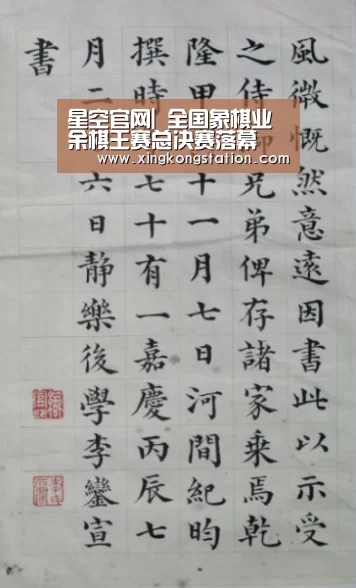 風微慨然意遠因書此以示受
之侍御兄弟俾存諸家乘焉乾
隆甲十一月七日河間紀昀
撰時七十有一嘉慶丙辰七
月二六日靜樂後學李鑾宣
書
星空官网| 全国象棋业
余棋王赛总决赛落幕
www.xingkongstation.com